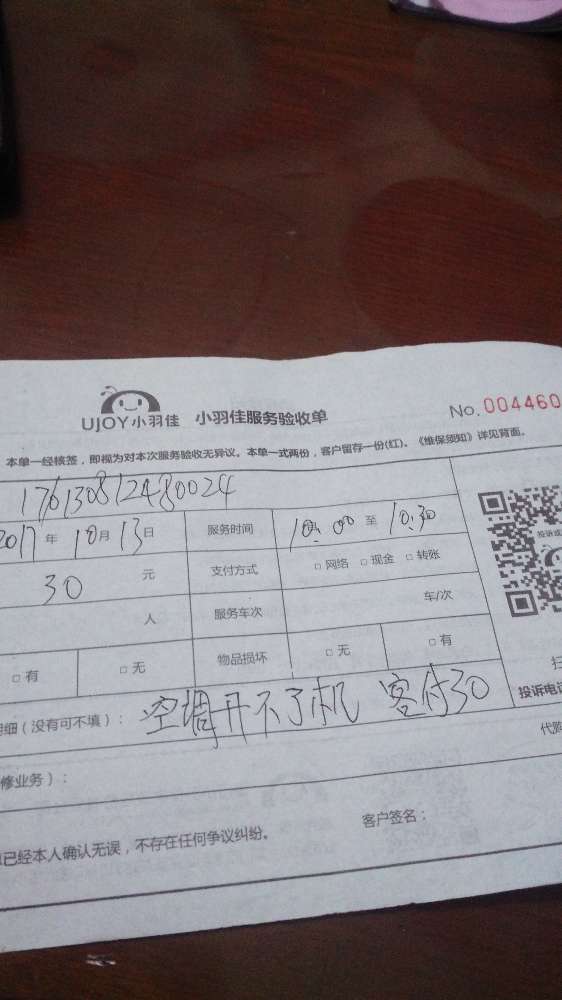 UJOY小羽佳 小羽佳服务验收单 No.004460
本单一经核签，即视为对本次服务验收无异议。本单一式两份，客户留存一份(红)。《维保须知》详见背面。
176130812480024
2017年10月13日 服务时间 10:00至10:30
30元 支付方式 □网络 □现金 □转账
人 服务车次 车/次
□有 □无 物品损坏 □无 □有
投诉电
细（没有可不填）： 空调开不了机 客付30
代购
修业务）：
已经本人确认无误，不存在任何争议纠纷。 客户签名：